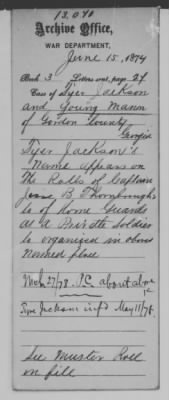 13.040
Archive Office,
WAR DEPARTMENT,
June 15, 1874
Book 3 Letters out, page 27
Case of Tyer Jackson
and Young Manen
of Gordon County
Georgia
Tyer Jackson's
Name appears on
the Rolls of Captain
B Thornbroughs
Co of Home Guards
as a Private Soldier
Co organized in above
named place
Mch 27/78. P.C. about above
Jackson inf'd May 11/78.
See Muster Roll
on file